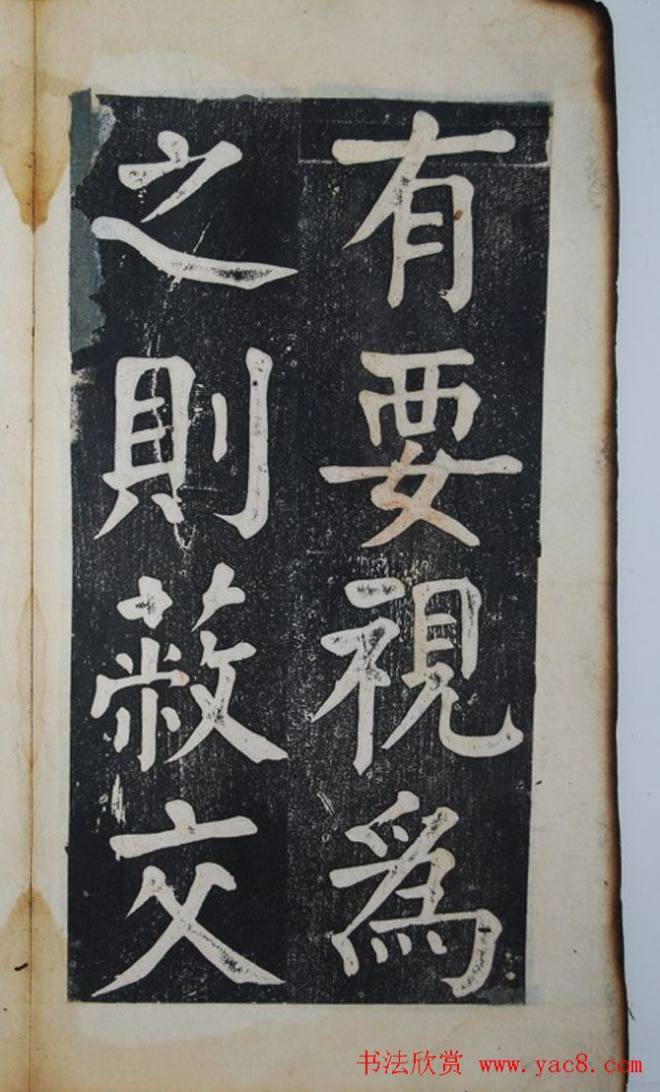 有要視爲
之則蔽交
书法欣赏 www.yac8.com